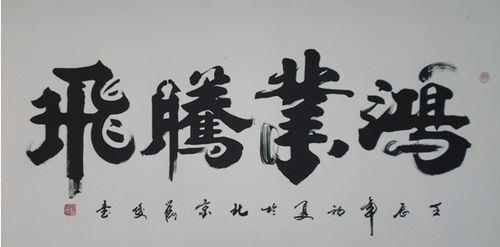 鴻業騰飛
壬辰年初夏於北京劉俊書